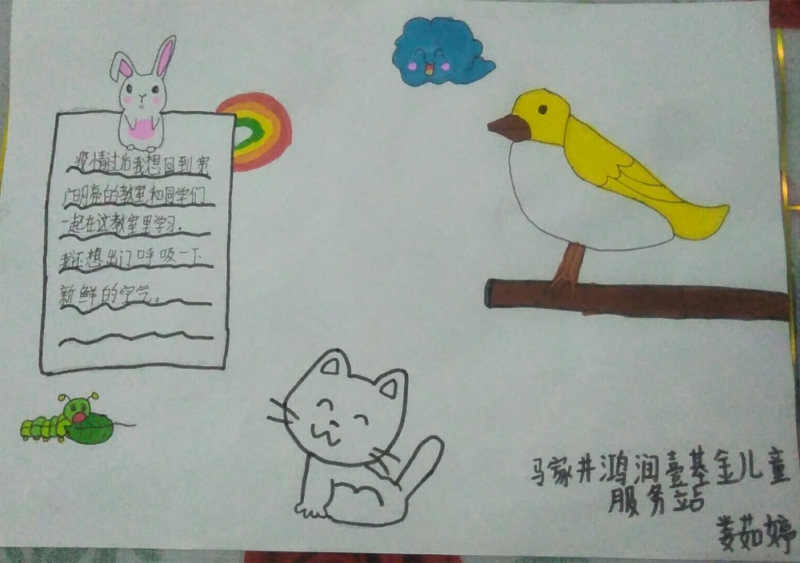 疫情过后我想回到宽
门明亮的教室和同学们
一起在这教室里学习。
我还想出门呼吸一下
新鲜的空气。
马家井鸿润壹基金儿童
服务站
姜茹婷